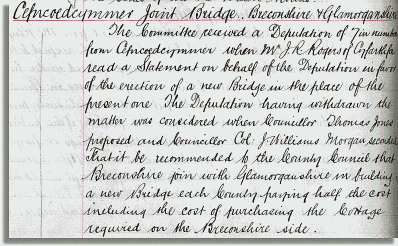 Cefncoedcymmer Joint Bridge, Breconshire & Glamorganshire
The Committee received a Deputation of 7 in number
from Cefncoedcymmer when Mr J. R. Rogers of Cyfarthfa
read a Statement on behalf of the Deputation in favor
of the erection of a new Bridge in the place of the
present one. The Deputation having withdrawn the
matter was considered when Councillor Thomas Jones
proposed and Councillor Col: J. Williams Morgan seconded
That it be recommended to the County Council that
Breconshire join with Glamorganshire in building
a new Bridge each County paying half the cost
including the cost of purchasing the Cottage
required on the Breconshire side.